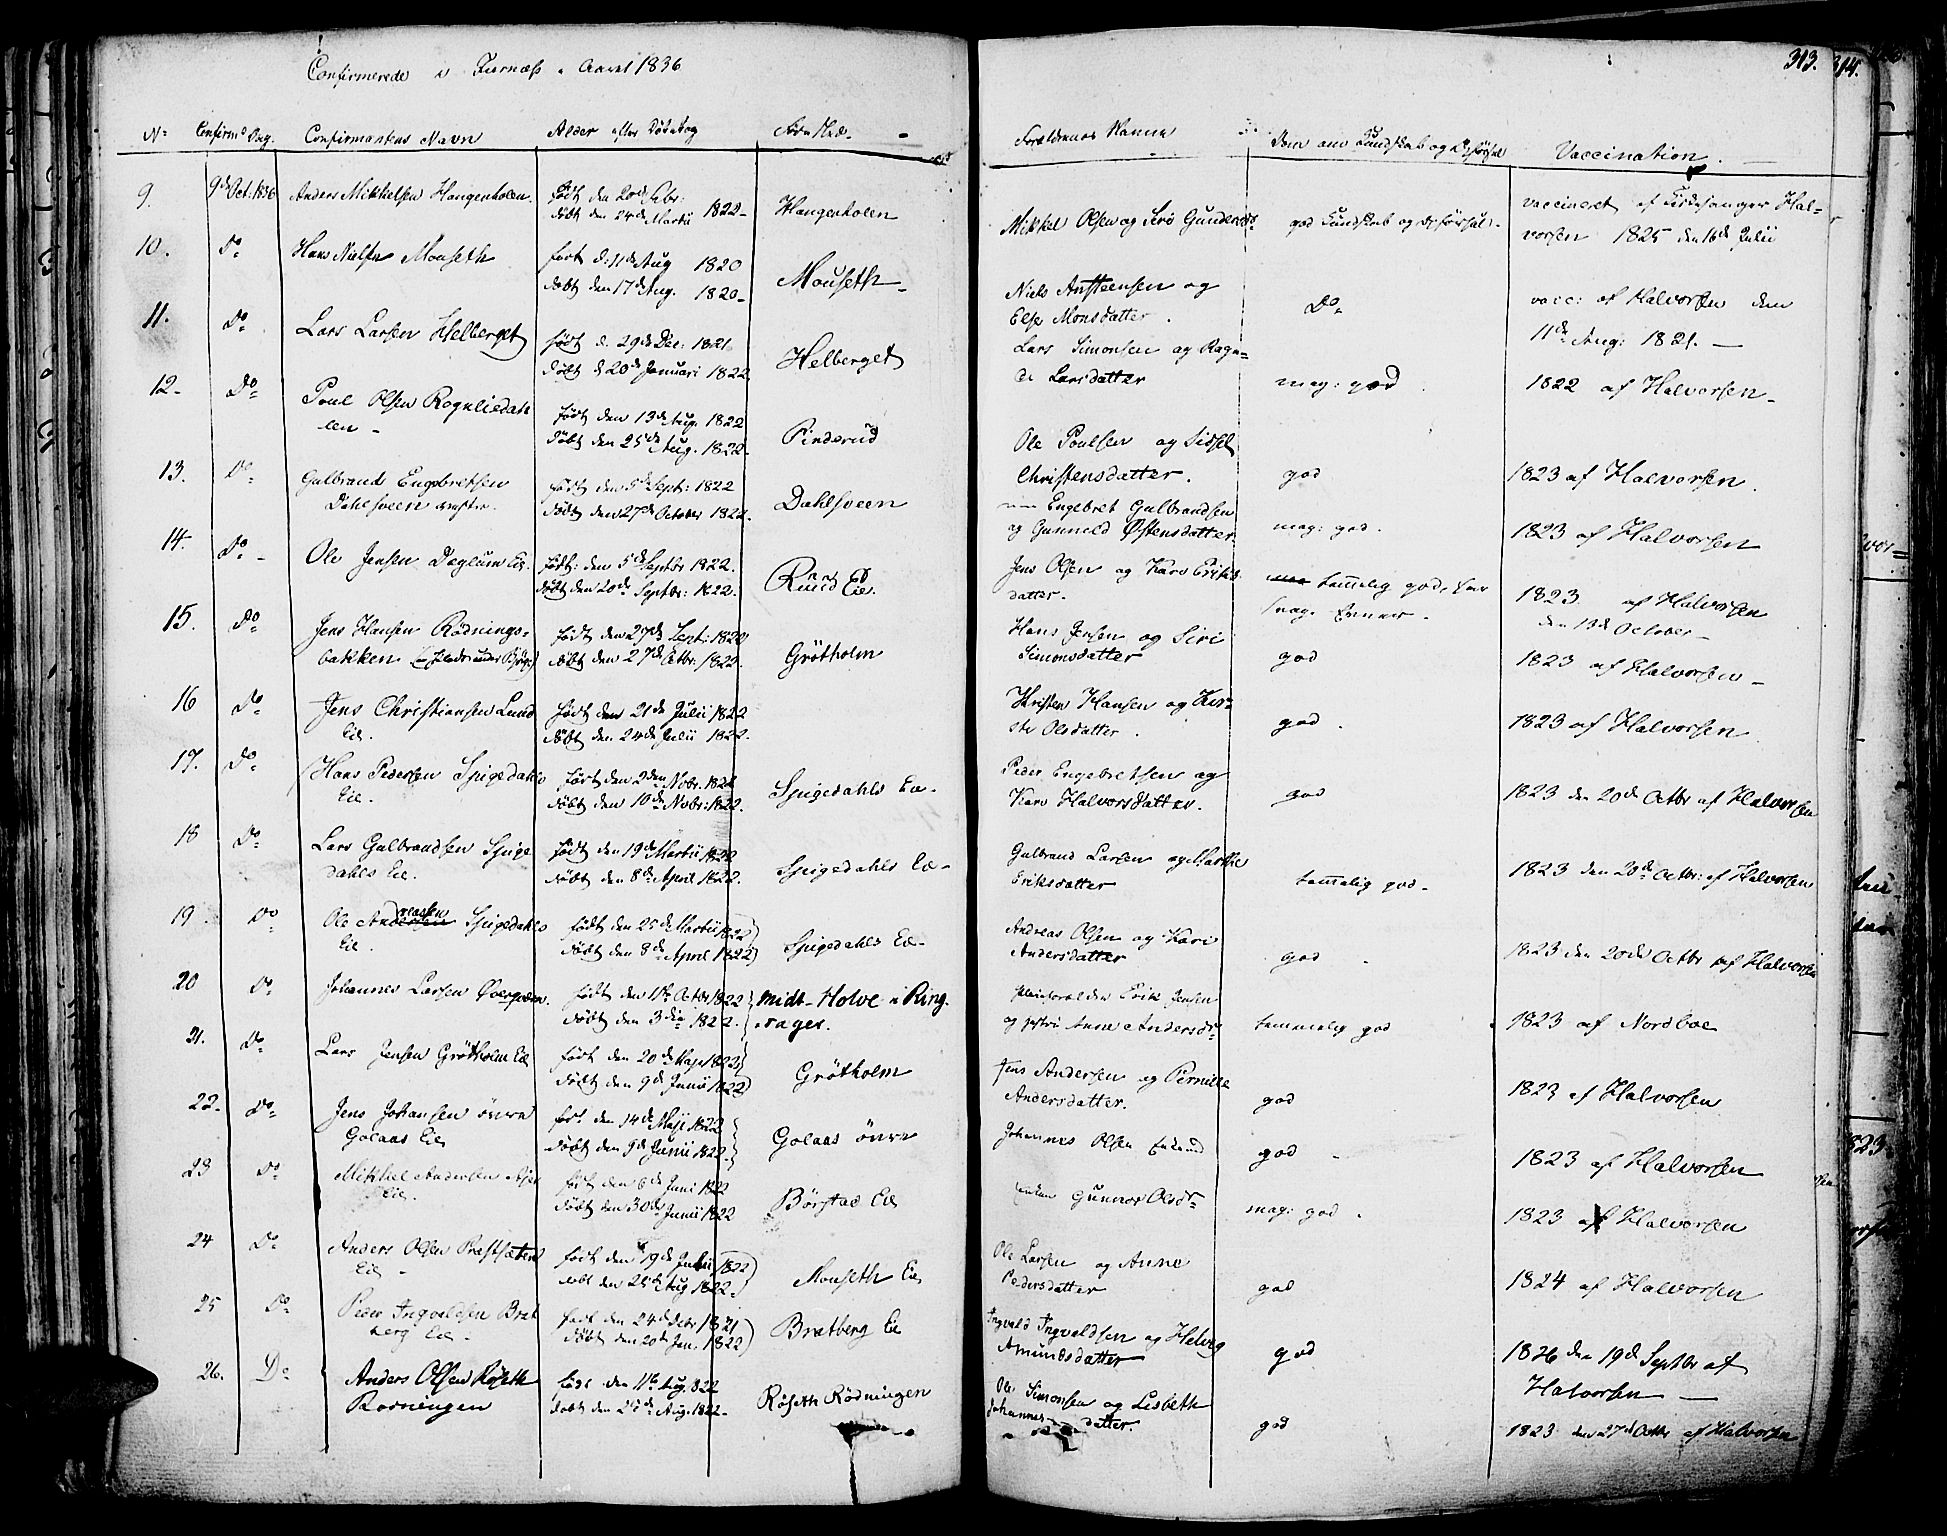 Confirmerede i Furnæss Aaret 1836
313.
314.
No Confirm: Dag. Confirmantens Navn Alder eller Døbedag
Forældrenes Navne Dom om Kundskab og Opførsel Vaccination.
9. 9de Oct. 1836 Anders Mikkelsen Haugenholen født den 20de Febr: døbt den 24de Martii 1822 Haugenholen
Mikkel Olsen og Siri god Kundskab og Opførsel. vaccineret af Kirkesanger Halvorsen 1825 den 16de Julii
10. Do Hans Nielsen Mouseth født d: 11te Aug 1820 døbt den 17de Aug. 1820 Mouseth
Niels Anstensen og Else Monsdatter. Do vacc: af Halvorsen den 11te Aug: 1821.
11. Do Lars Larsen Helberget født d. 29de Dec: 1821 døbt d 20de Januari 1822 Helberget
Lars Simonsen og Larsdatter mag: god 1822 af Halvorsen
12. Do Poul Olsen født den 13de Aug. 1822 døbt den 25de Aug. 1822 Pinderud
Ole Poulsen og Sidsel Christensdatter. god 1823 af Halvorsen.
13. Do Gulbrand Engebretsen Dahlsveen født den 5te Sept: 1822 døbt den 27de October 1822 Dahlsveen
Engebret Gulbrandsen og Gunnild Østensdatter mag: god. 1823 af Halvorsen
14. Do Ole Jensen Deglum Eie. født: den 5te Septbr 1822. døbt den 20de Septbr: 1822. Ruud Eie.
Jens Olsen og Kari Eriksdatter. tammelig god, har svag. Evner. 1823 af Halvorsen den 13de October
15. Do Jens Hansen Rødningsbakken født den 27de Sept: 1822 døbt den 27de Octbr. 1822. Grötholm
Hans Jensen og Siri Simonsdatter god 1823 af Halvorsen
16 Do Jens Christiansen Lund Eie. født den 21de Julii 1822 døbt den 24de Julii 1822.
Kristen Hansen og Kirsti Olsdatter. god. 1823 af Halvorsen
17. Do Hans Pedersen Spigedahls Eie. født den 2den Novbr. 1822 døbt den 10de Novbr: 1822. Spigedahls Eie
Peder Engebretsen og Kari Halvorsdatter. god 1823 den 20de Octbr af Halvorsen
18 Do Lars Gulbrandsen Spigedahls Eie. født den 19de Martii 1822 døbt den 8de April 1822. Spigedahls Eie
Gulbrand Larsen og Marthe Eriksdatter tammelig god. 1823 den 20de Octbr: af Halvorsen
19. Do Ole Andreasen Spigedahls Eie. født den 25de Martii 1822 døbt den 8de April 1822 Spigedahls Eie
Andreas Olsen og Kari Andersdatter god. 1823 den 20de Octbr af Halvorsen
20 Do Johannes Larsen født den 11te Octbr 1822 døbt den 3die 1822. Midt-Holve i Ringsager.
Pleieforældre Erik Jensen og Anne Andersdr tammelig god 1823 af Nordboe
21. Do Lars Jensen Grötholm Eie født den 20de Maje 1822 døbt den 9de Junii 1822 Grötholm
Jens Andersen og Pernille Andersdatter. god 1823 af Halvorsen
22. Do Jens Johansen övre Golaas Eie den 14de Maje 1822 døbt den 9de Junii 1822. Golaas övre
Johannes Olsen god 1823 af Halvorsen
23 Do Mikkel Andersen Eie. født den 6te Juni 1822 døbt den 30de Junii 1822 Børstad Eie
Gunnor Olsdr mag: god. 1823 af Halvorsen
24 Do Anders Olsen Præstsæter Eie født den 19de Julii 1822 døbt den 25de Aug 1822. Mouseth Eie
Ole Larsen og Anne Pedersdatter god 1824 af Halvorsen
25 Do Peder Ingvaldsen Bratberg Eie født den 24de Decbr 1821 døbt den 20de Jan. 1822 Bratberg Eie
Ingvald Ingvaldsen og Helvig Amundsdatter god 1826 den 19de Septbr af Halvorsen
26. Do Anders Olsen Røseth Rødningen født den 11te Aug. 1822 døbt den Aug. 1822. Røseth Rødningen
Ole Simonsen og Lisbeth Johannesdatter. god 1823 den 27de Octbr af Halvorsen